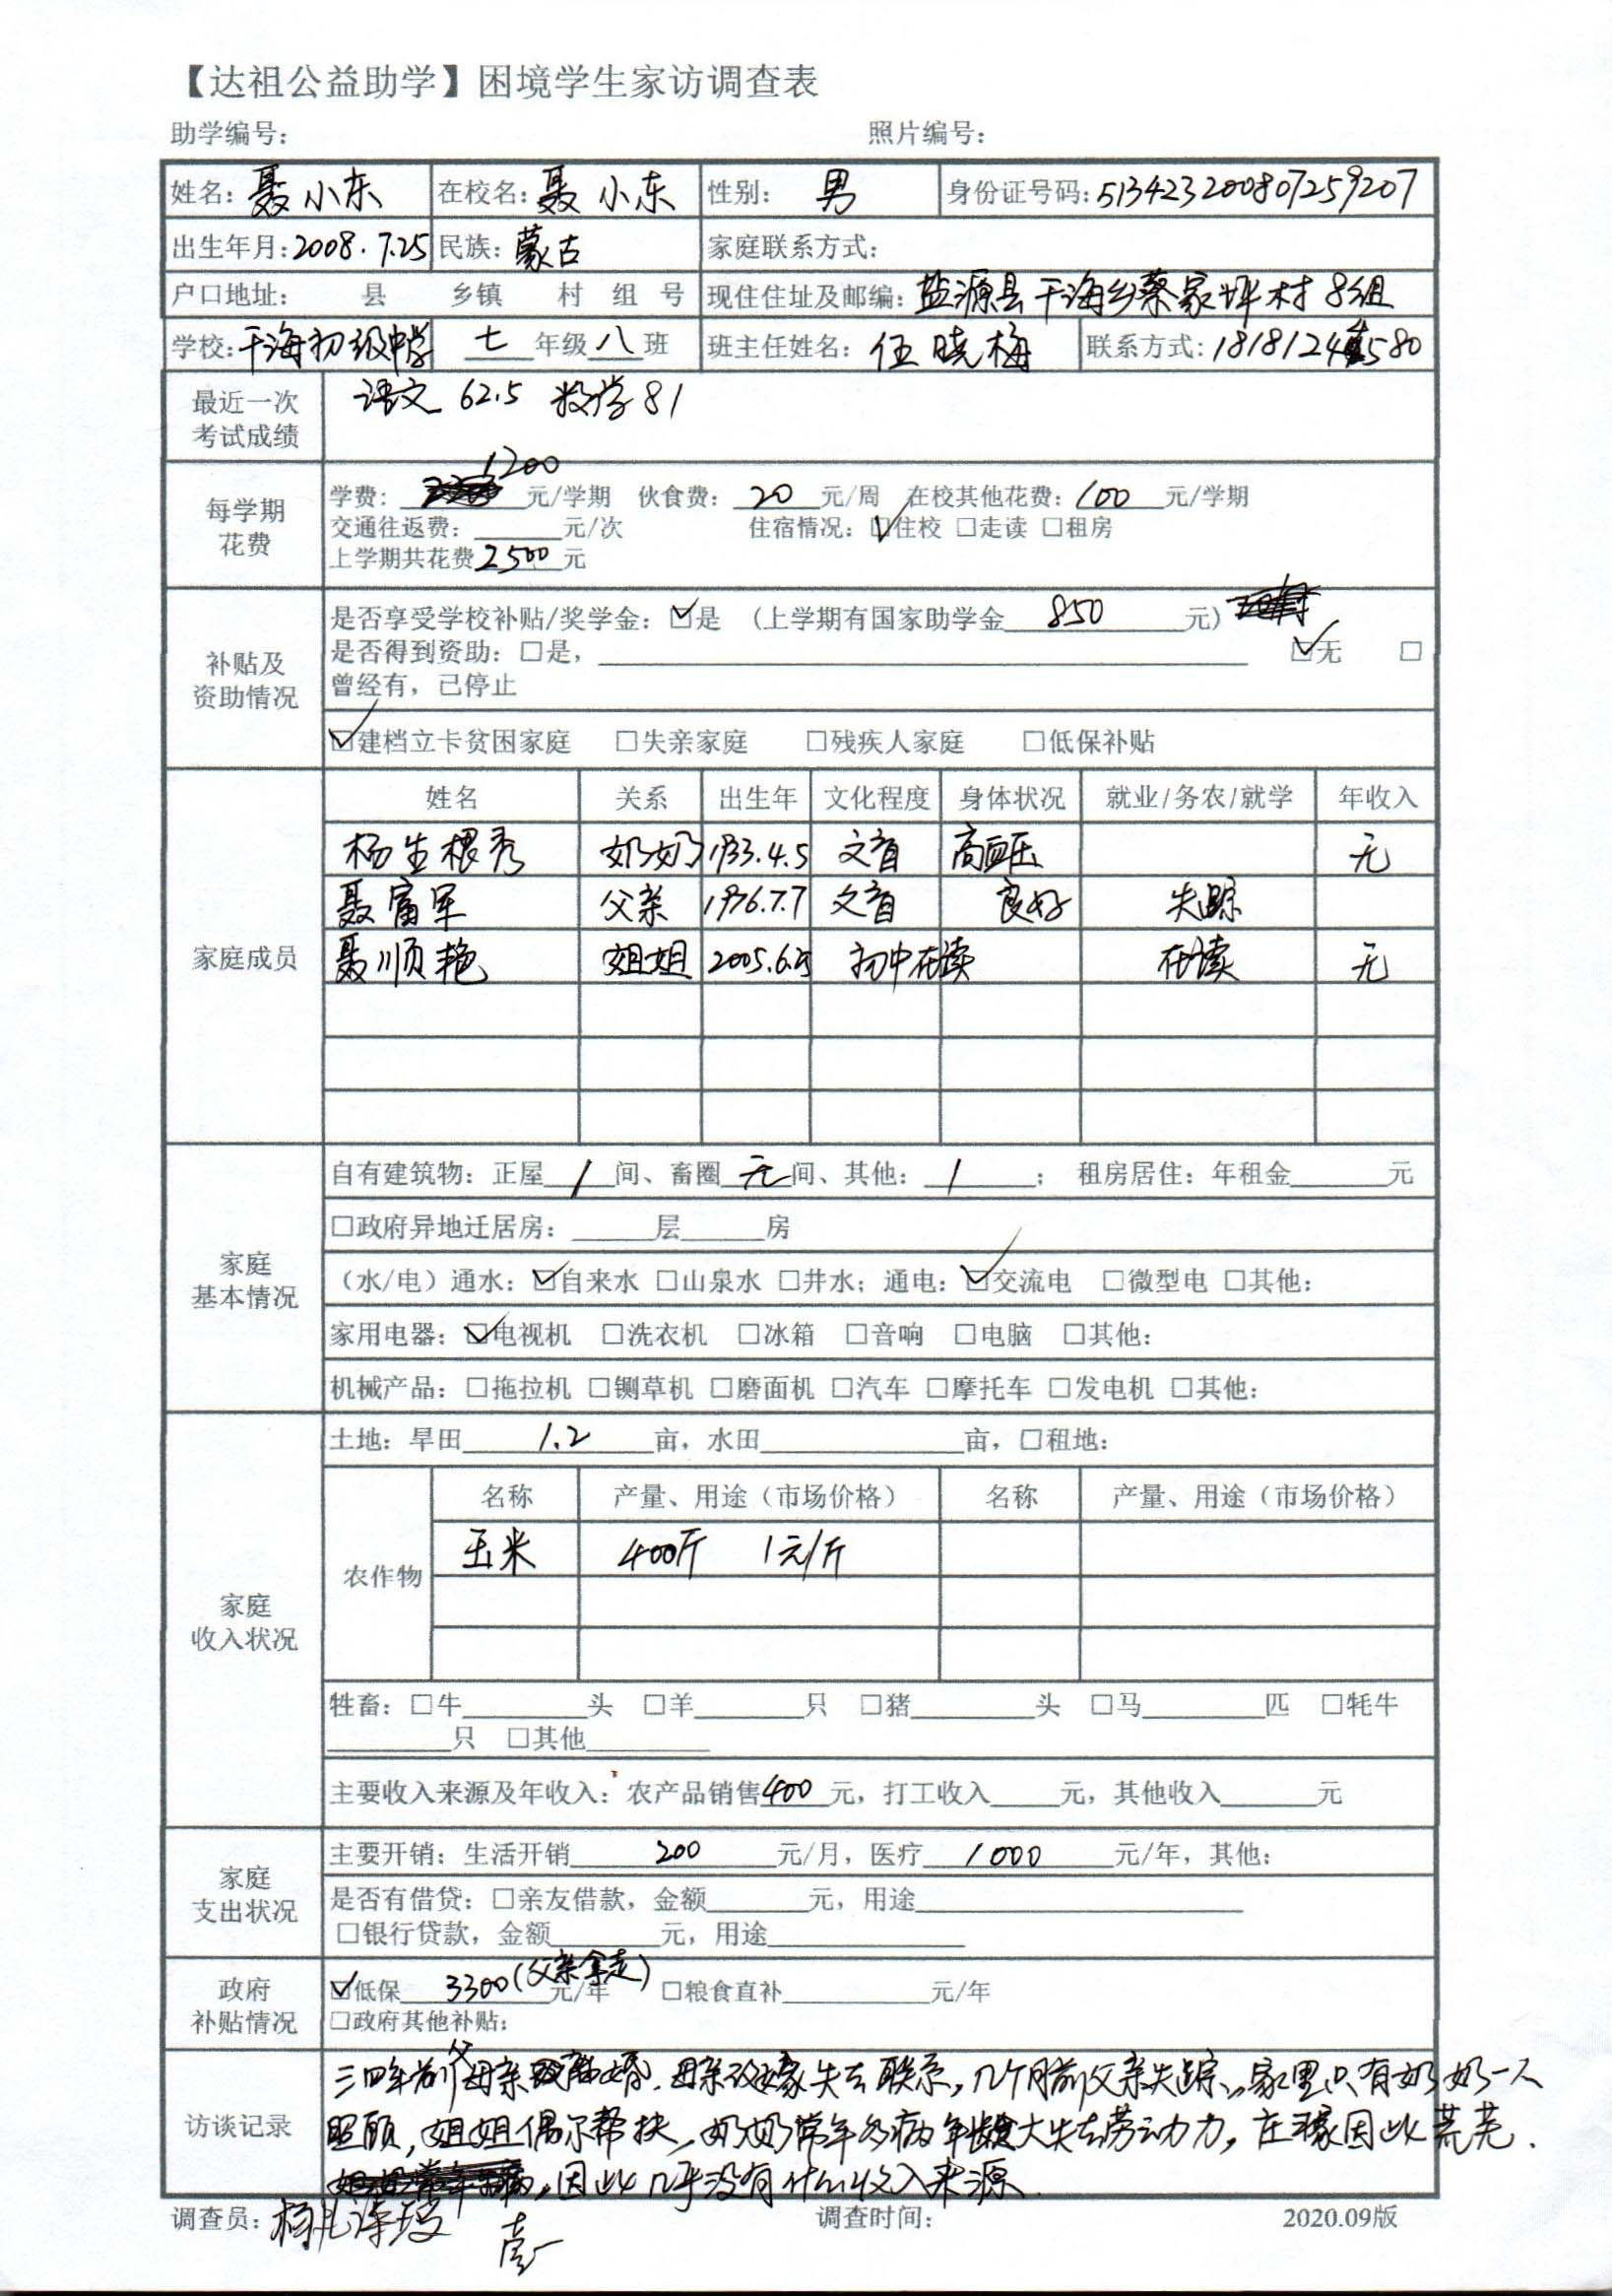 【达祖公益助学】困境学生家访调查表
助学编号： 照片编号：
姓名：聂小东 在校名：聂小东 性别：男 身份证号码：513423200807259207
出生年月：2008.7.25 民族：蒙古 家庭联系方式：
户口地址： 县 乡镇 村 组 号 现住住址及邮编：盐源县干海乡蔡家坪村8组
学校：干海初级中学 七年级八班 班主任姓名：伍晓梅 联系方式：
最近一次 语文 62.5 数学 81
考试成绩
1200
每学期 学费：元/学期 伙食费：20元/周 在校其他花费：100元/学期
花费 交通往返费：元/次 住宿情况：☑住校 □走读 □租房
上学期共花费2500元
是否享受学校补贴/奖学金：☑是 （上学期有国家助学金850元）
补贴及 是否得到资助：□是， ☑无 □
资助情况 曾经有，已停止
☑建档立卡贫困家庭 □失亲家庭 □残疾人家庭 □低保补贴
姓名 关系 出生年 文化程度 身体状况 就业/务农/就学 年收入
杨生根秀 奶奶 1933.4.5 文盲 高血压 无
聂富军 父亲 1976.7.7 文盲 良好 失踪
家庭成员 聂顺艳 姐姐 初中在读 在读 无
自有建筑物：正屋1间、畜圈无间、其他：1； 租房居住：年租金元
□政府异地迁居房：层房
家庭 （水/电）通水：☑自来水 □山泉水 □井水；通电：☑交流电 □微型电 □其他：
基本情况 家用电器：☑电视机 □洗衣机 □冰箱 □音响 □电脑 □其他：
机械产品：□拖拉机 □铡草机 □磨面机 □汽车 □摩托车 □发电机 □其他：
土地：旱田1.2亩，水田亩，□租地：
名称 产量、用途（市场价格） 名称 产量、用途（市场价格）
农作物 玉米 400斤 1元/斤
家庭
收入状况
牲畜：□牛头 □羊只 □猪头 □马匹 □牦牛
只 □其他
主要收入来源及年收入：农产品销售400元，打工收入元，其他收入元
家庭 主要开销：生活开销200元/月，医疗1000元/年，其他：
支出状况 是否有借贷：□亲友借款，金额元，用途
□银行贷款，金额元，用途
政府 ☑低保3300(父亲拿走)元/年 □粮食直补元/年
补贴情况 □政府其他补贴：
三四年前父母亲离婚，母亲改嫁失去联系，几个月前父亲失踪，家里只有奶奶一人
访谈记录 照顾，姐姐偶尔帮扶，奶奶常年多病年龄大失去劳动力，庄稼因此荒芜．
因此几乎没有什么收入来源．
调查员： 调查时间： 2020.09版